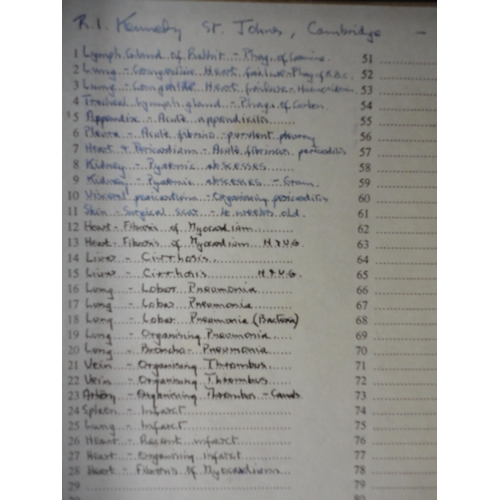 R.I. Kennedy St. Johns, Cambridge -
1 Lymph Gland of Rabbit - Phag. of Carmine. 51
2 Lung - Congestive Heart failure - Phag of R.B.C. 52
3 Lung - Congestive Heart failure - Haemosiderin 53
4 Tracheal Lymph gland - Phags of Carbon 54
5 Appendix - Acute appendicitis 55
6 Pleura - Acute fibrino-purulent pleurisy 56
7 Heart & Pericardium - Acute fibrinous pericarditis 57
8 Kidney - Pyaemic abscesses 58
9 Kidney - Pyaemic abscesses - Gram. 59
10 Visceral pericardium - Organising pericarditis 60
11 Skin - Surgical scar - weeks old. 61
12 Heart - Fibrosis of Myocardium 62
13 Heart - Fibrosis of Myocardium H.& V.G. 63
14 Liver - Cirrhosis 64
15 Liver - Cirrhosis H.& V.G. 65
16 Lung - Lobar Pneumonia 66
17 Lung - Lobar Pneumonia 67
18 Lung - Lobar Pneumonia (Bacteria) 68
19 Lung - Organising Pneumonia 69
20 Lung - Broncho-Pneumonia 70
21 Vein - Organising Thrombus 71
22 Vein - Organising Thrombus 72
23 Artery - Organising Thrombus - 73
24 Spleen - Infarct 74
25 Lung - Infarct 75
26 Heart - Recent infarct 76
27 Heart - Organising infarct 77
28 Heart - Fibrosis of Myocardium 78
29 79
30 80